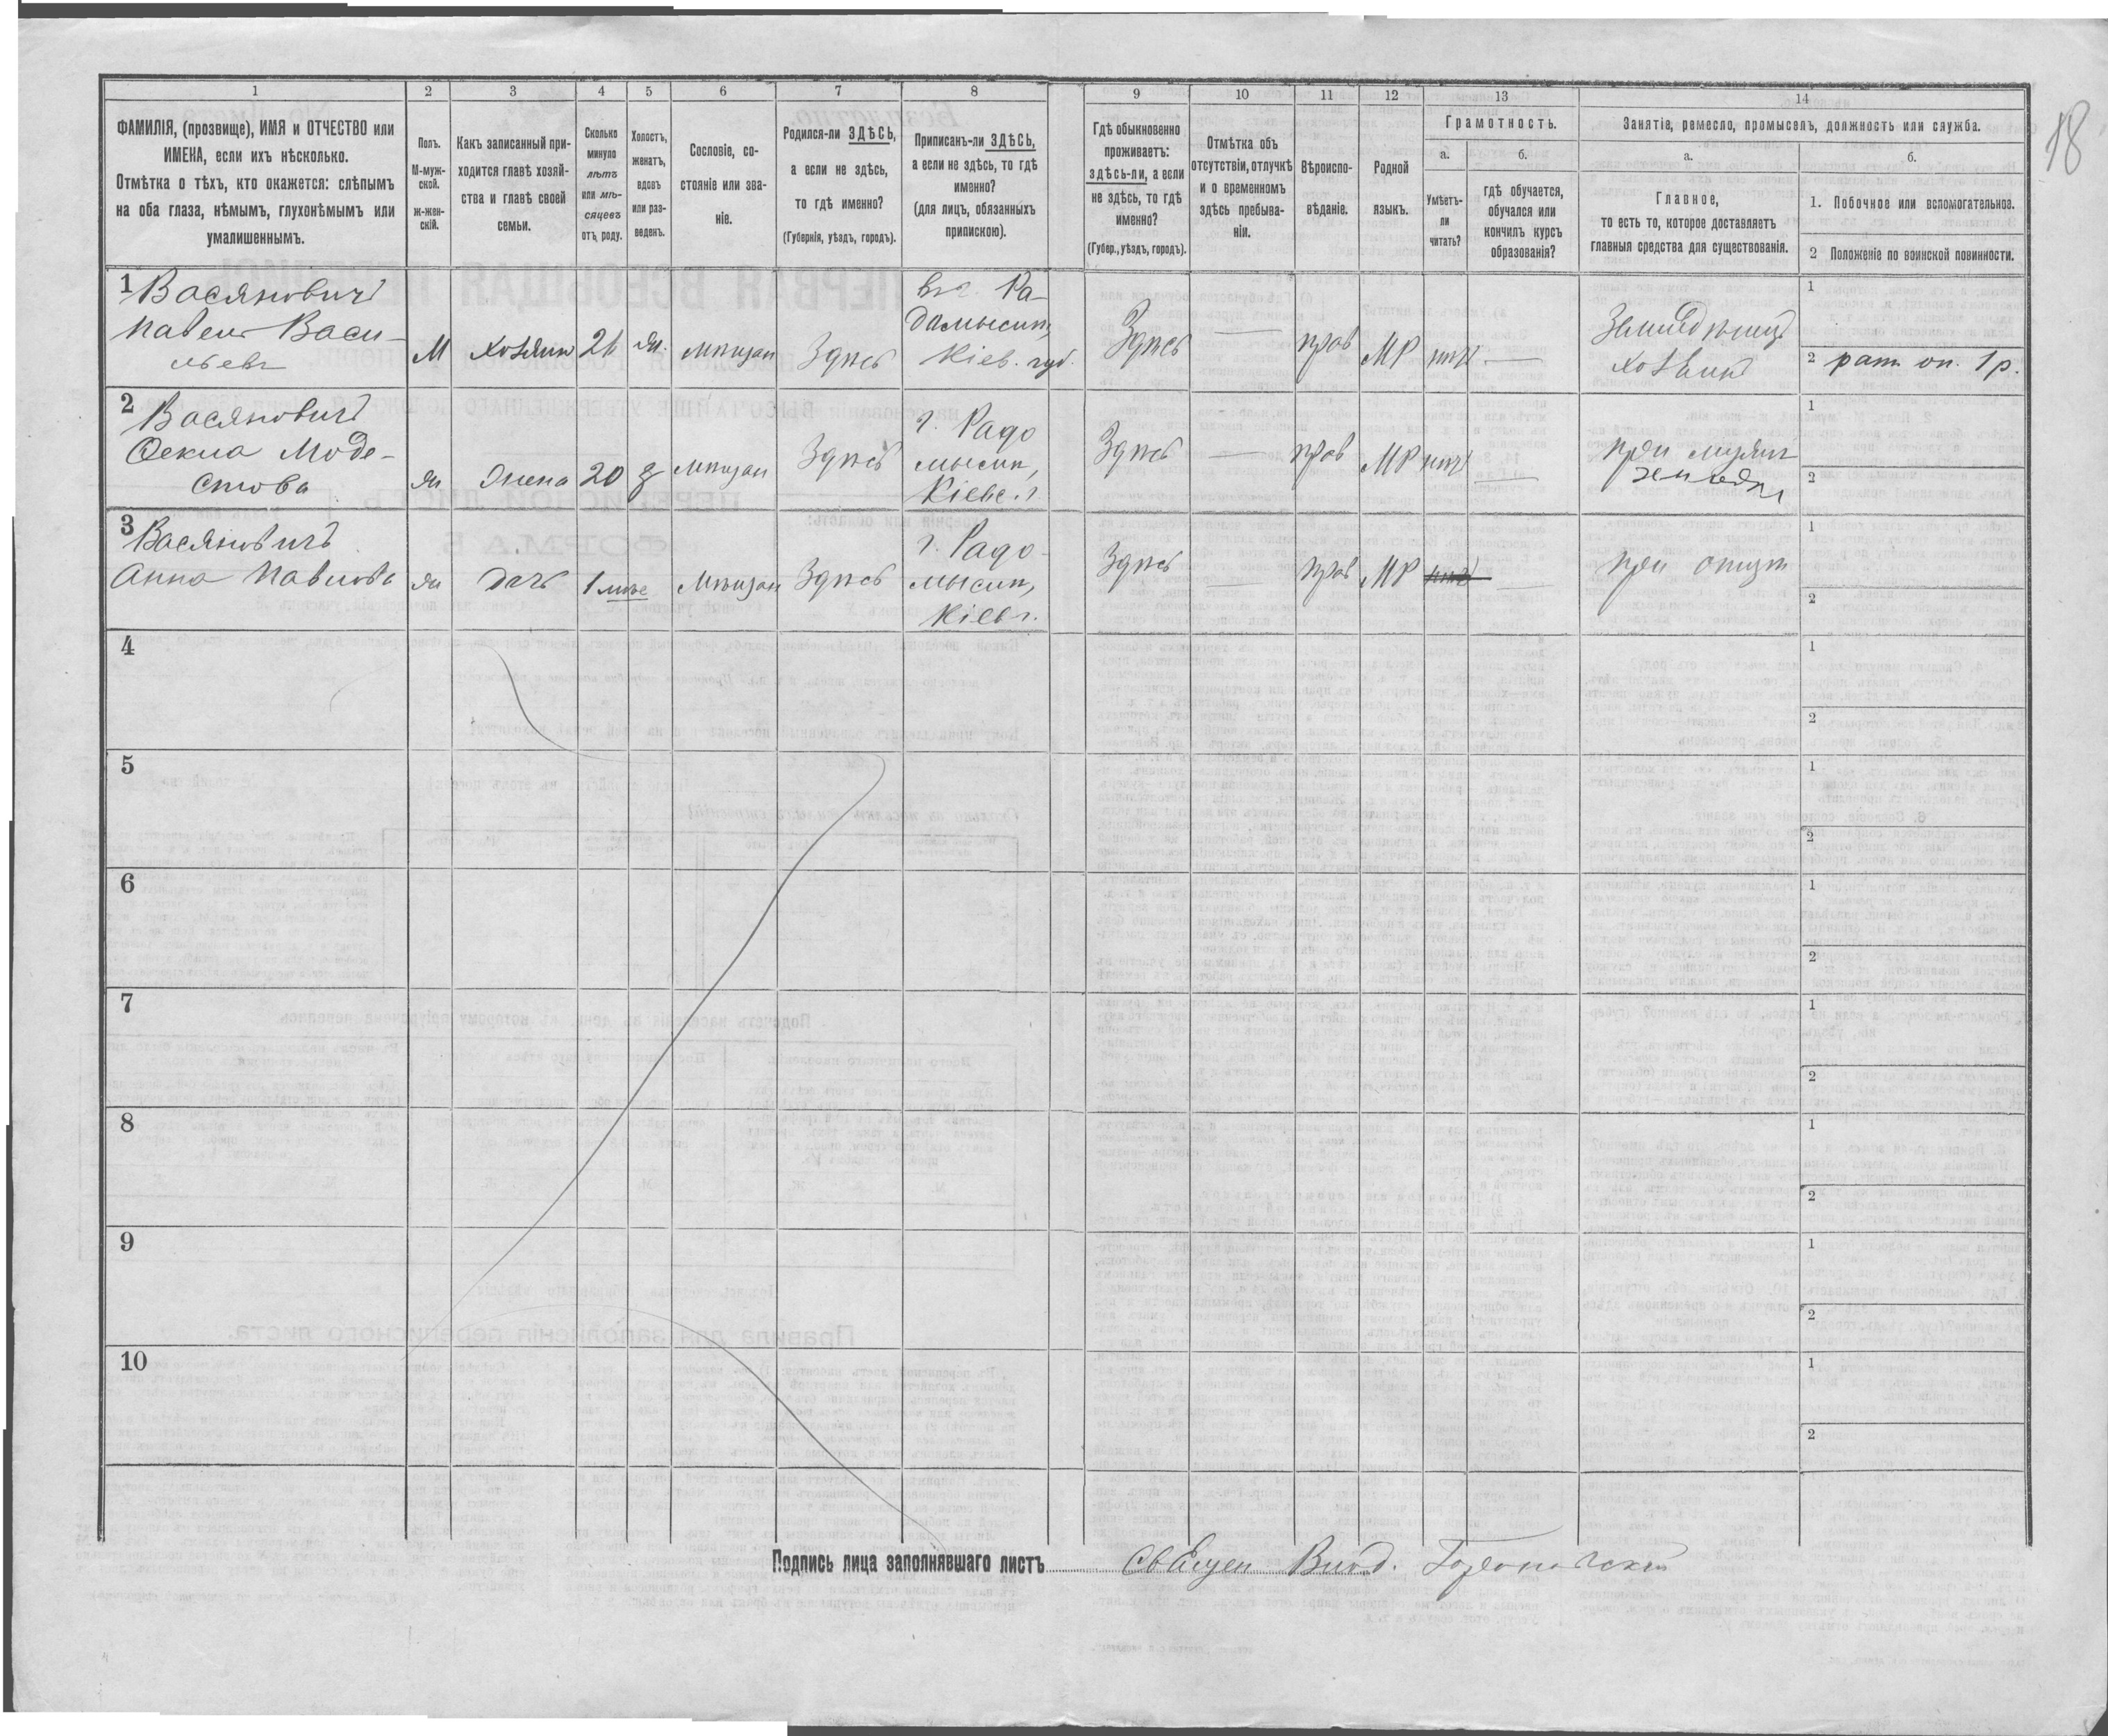 18
1
2
3
4
5
6
7
8
9
10
11
12
13
14
ФАМИЛІЯ, (прозвище), ИМЯ и ОТЧЕСТВО или
ИМЕНА, если ихъ нѣсколько.
Отмѣтка о тѣхъ, кто окажется: слѣпымъ
на оба глаза, нѣмымъ, глухонѣмымъ или
умалишеннымъ.
Полъ.
М-муж-
ской.
ж-жен-
скій.
Какъ записанный при-
ходится главѣ хозяй-
ства и главѣ своей
семьи.
Сколько
минуло
лѣтъ
или мѣ-
сяцевъ
отъ роду.
Холостъ,
женатъ,
вдовъ
или раз-
веденъ.
Сословіе, со-
стояніе или зва-
ніе.
Родился-ли ЗДѢСЬ,
а если не здѣсь,
то гдѣ именно?
(Губернія, уѣздъ, городъ).
Приписанъ-ли ЗДѢСЬ,
а если не здѣсь, то гдѣ
именно?
(для лицъ, обязанныхъ
припискою).
Гдѣ обыкновенно
проживаетъ:
здѣсь-ли, а если
не здѣсь, то гдѣ
именно?
(Губер., уѣздъ, городъ).
Отмѣтка объ
отсутствіи, отлучкѣ
и о временномъ
здѣсь пребыва-
ніи.
Вѣроиспо-
вѣданіе.
Родной
языкъ.
Грамотность.
а.
Умѣетъ-
ли
читать?
б.
гдѣ обучается,
обучался или
кончилъ курсъ
образованія?
Занятіе, ремесло, промыселъ, должность или служба.
а.
Главное,
то есть то, которое доставляетъ
главныя средства для существованія.
б.
1. Побочное или вспомогательное.
2 Положеніе по воинской повинности.
1 Васяновичъ
Павелъ Васи-
льевъ
М
хозяинъ
жн.
мѣщан
Здѣсь
въ г. Ра-
домыслѣ,
Кіев. губ.
Здѣсь
—
прав
МР
нѣтъ
—
хозяинъ
1
2 рат. оп. 1 р.
2 Васяновичъ
Фекла Моде-
стова
жн
жена
20
з
мѣщан
Здѣсь
г. Радо
мыслѣ,
Кіевс. г
Здѣсь
—
прав
МР
нѣтъ
—
при мужѣ
1
2
3 Васяновичъ
Анна Павлова
жн
дочь
1 мѣс
Мѣщан
Здѣсь
г. Радо-
мыслѣ,
Кіев г.
Здѣсь
—
прав
МР
нѣтъ
—
при отцѣ
1
2
4
1
2
5
1
2
6
1
2
7
1
2
8
1
2
9
1
2
10
1
2
Подпись лица заполнявшаго листъ
Священ